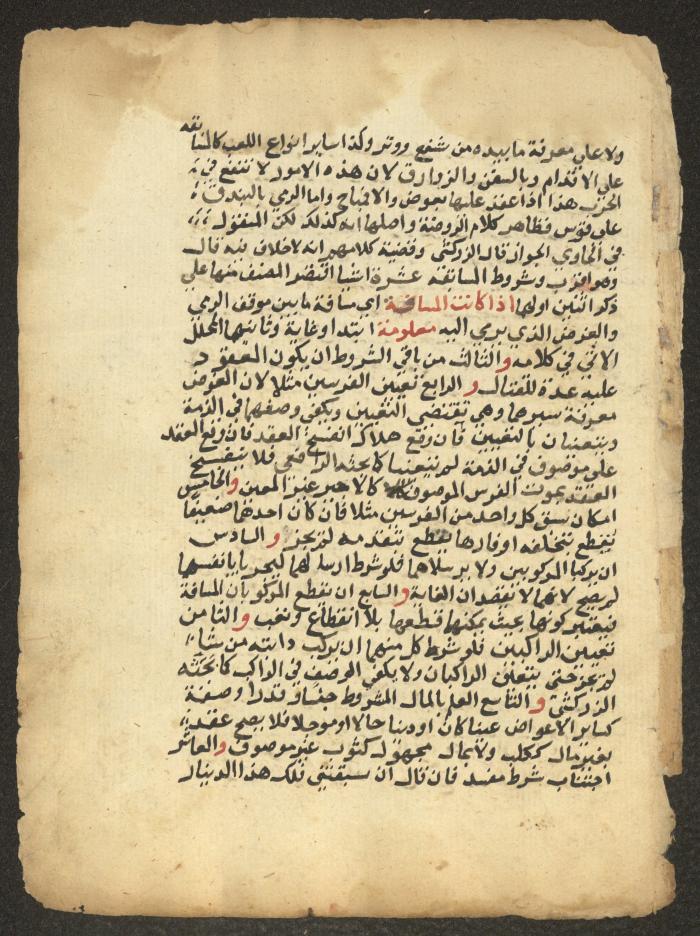 ولا على معرفة ما بيده من شفع ووتر وكذا ساير انواع اللعب كالمسابقة
على الاقدام وبالسفن والزوارق لان هذه الامور لا تنفع في
الحرب هذا اذا عقد عليها بعوض والا فمباح واما الرمي بالبندق
على قوس فظاهر كلام الروضة واصلها انه كذلك لكن المنقول
في الحاوي الجواز قال الزركشي وقضية كلامهم انه لا خلاف فيه قال
وهو اقرب وشروط المسابقة عشرة اشيا اقتصر المصنف منها على
ذكر اثنين اولها اذا كانت المسافة اي مسافة ما بين موقف الرمي
والغرض الذي يرمي اليه معلومة ابتدا وغاية وثانيها المحلل
الاتي في كلامه والثالث من باقي الشروط ان يكون المعقود
عليه عدة للقتال و الرابع تعيين الفرسين مثلا لان الغرض
معرفة سيرهما وهي تقتضي التعيين ويكفي وصفهما في الذمة
ويتعينان بالتعيين فان وقع هلاك انفسخ العقد فان وقع العقد
على موصوف في الذمة لم يتعينا كما بحثه الرافعي فلا ينفسخ
العقد بموت الفرس الموصوف كالاجير غير المعين والخامس
امكان سبق كل واحد من الفرسين مثلا فان كان احدهما ضعيفا
يقطع بتخلفه او فارها يقطع بتقدمه لم يجز و السادس
ان يركبا المركوبين ولا يرسلاهما فلو شرط ارسالهما ليجريا بانفسهما
لم يصح لانهما لا يقصدان الغاية والسابع ان يقطع المركوبان المسافة
فيعتبر كونهما بحيث يمكنهما قطعها بلا انقطاع وتعب والثامن
تعيين الراكبين فلو شرط كل منهما ان يركب دابته من شاء
لم يجز حتى يتعين الراكبان ولا يكفي الوصف في الراكب كما بحثه
الزركشي و التاسع العلم بالمال المشروط جنسا وقدرا وصفة
كساير الاعواض عينا كان او دينا حالا او موجلا فلا يصح عقد
بغير مال ككلب ولا بمال مجهول كثوب غير موصوف والعاشر
اجتناب شرط مفسد فان قال ان سبقتني فلك هذا الدينار